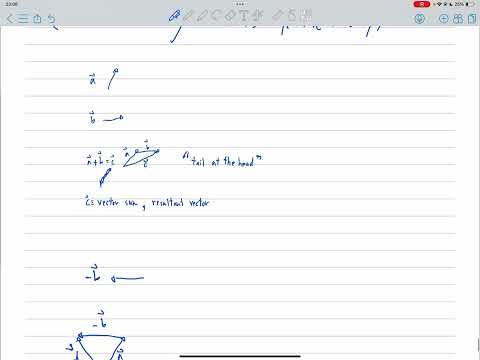 23:00
25%
a⃗
b⃗
a⃗ + b⃗ = c⃗ a⃗ b⃗ c⃗ "tail at the head"
c⃗ = vector sum, resultant vector
-b⃗
-b⃗